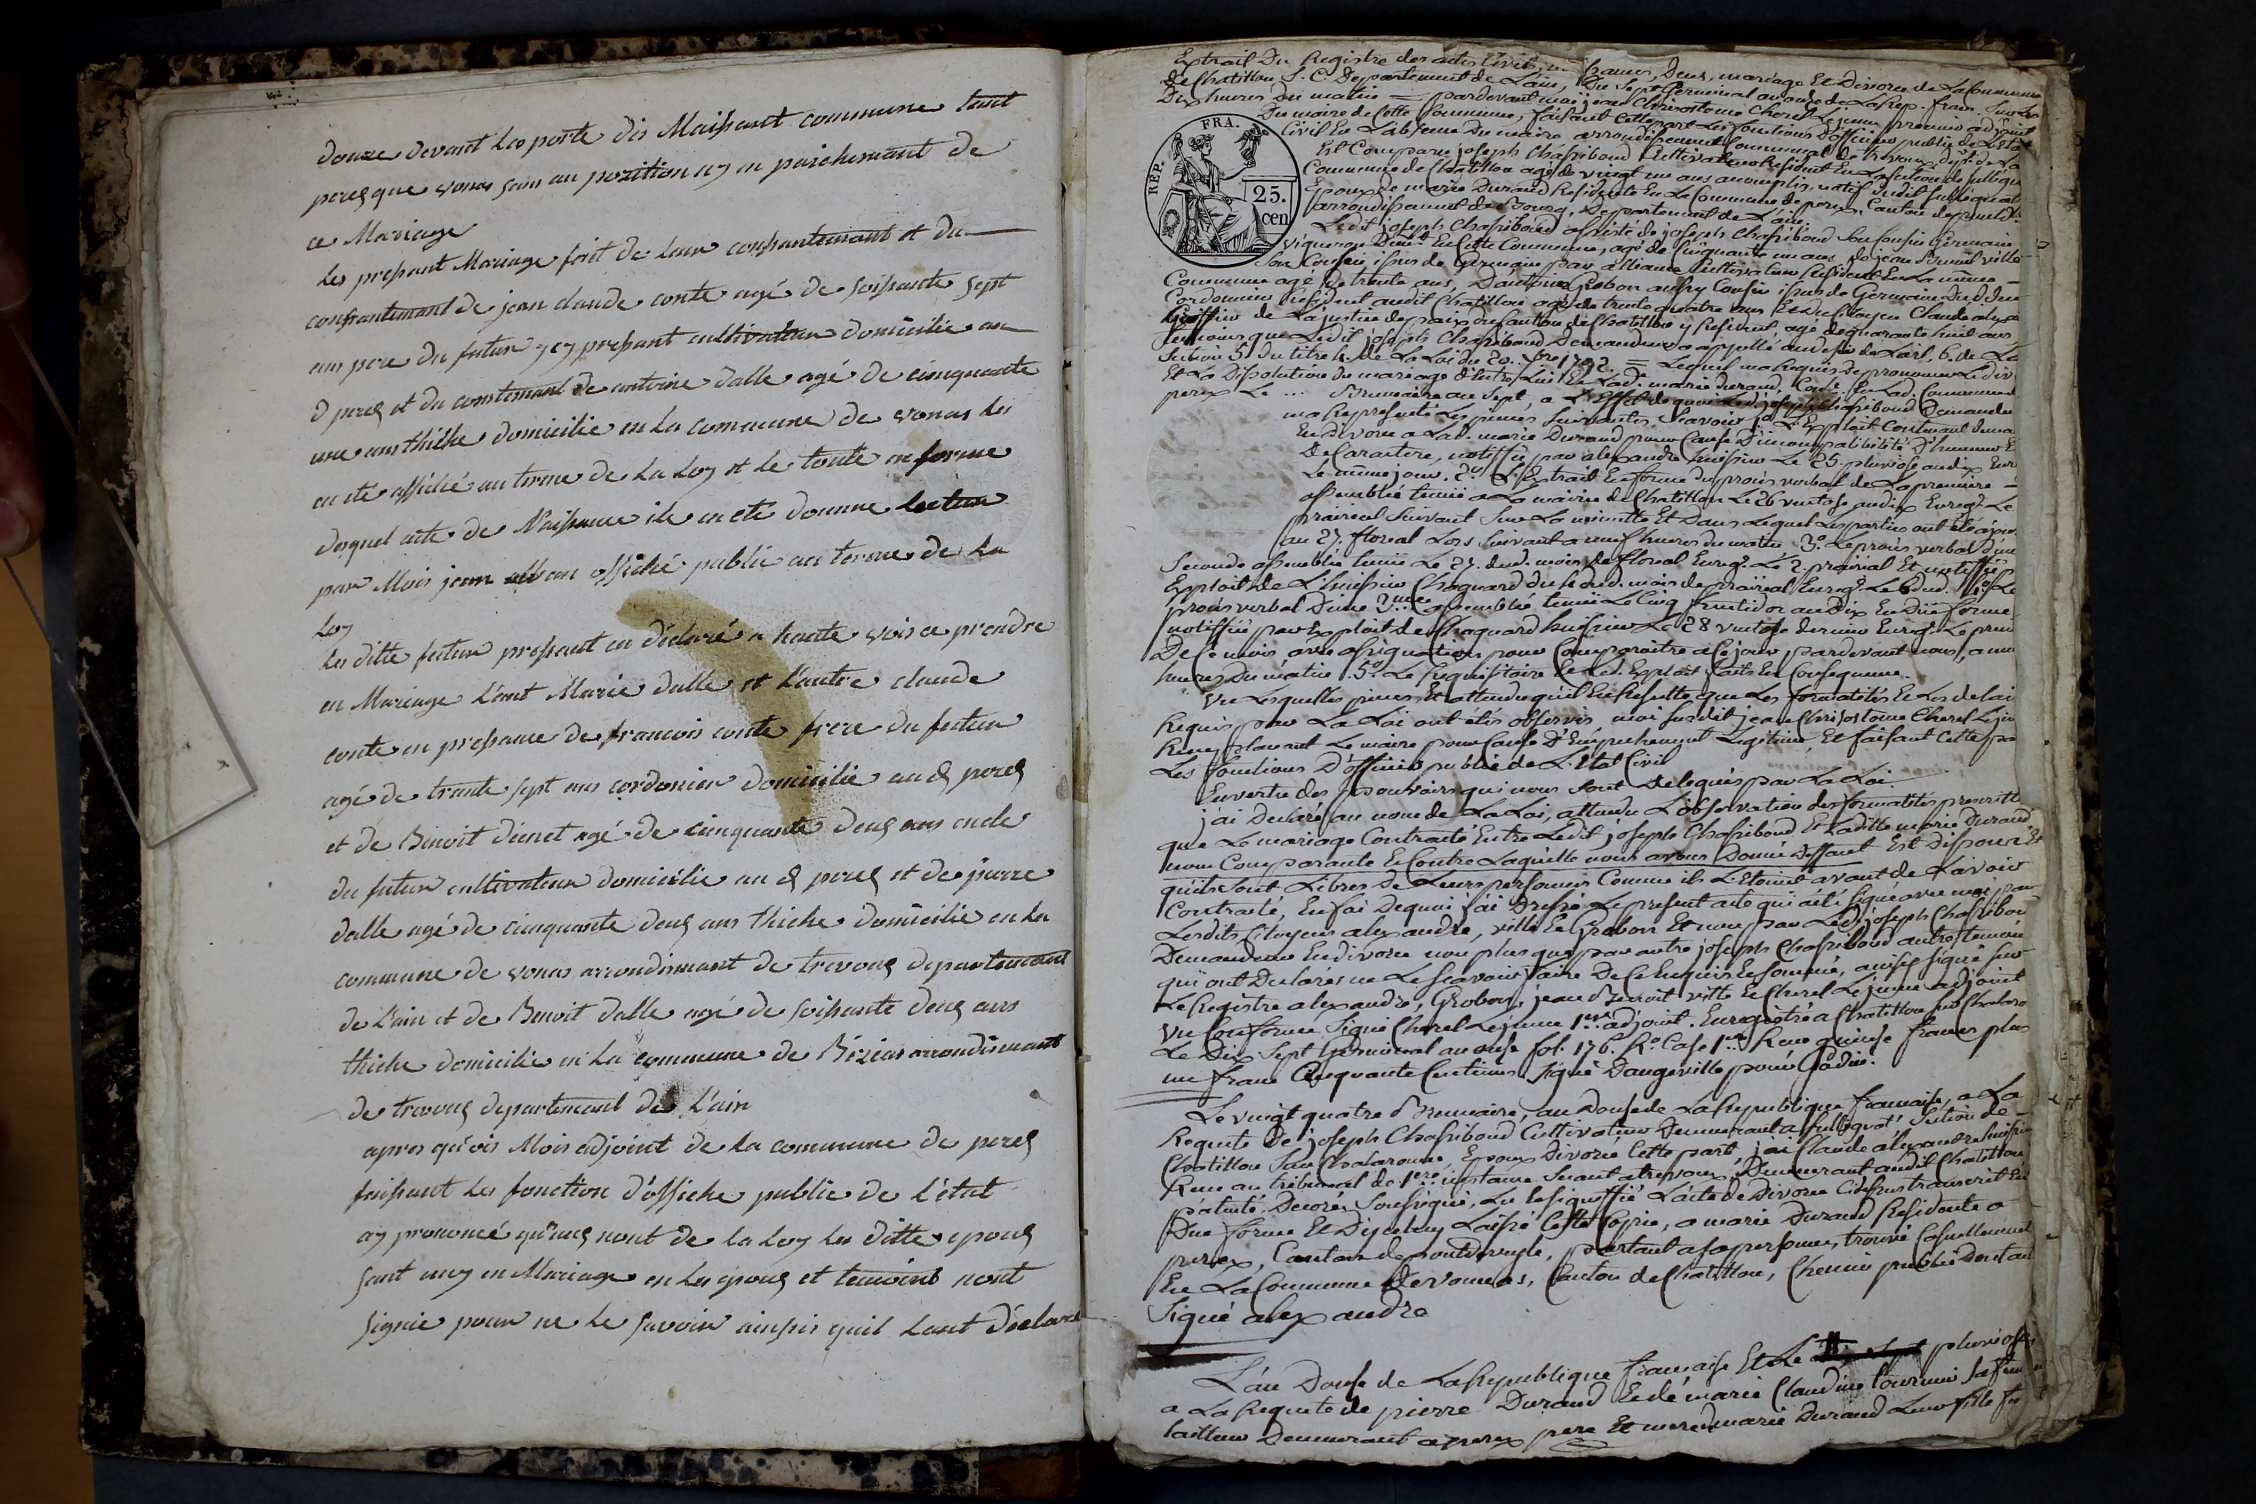 douze devant la porte dis Maissant commune tant
perex que vonas sans au pozition ny en paichemant de
ce Mariage
les pressant Mariage foit de leur consantemant et du
consantemant de jean claude conte agé de soissante sept
ans pere du futur y cy pressant cultivateur domicilie au
d perex et du constemant de antoine dalle agé de cinquante
une ans thicke domicilie en la commune de vonas les
en ete affiché au terme de la Loy et le toute en forme
desquel acte de Naissance ile en ete donnne lectur
par Mois jean alban officié public au terme de la
Loy
les ditte futur pressant en déclaré a haute vois ce prendre
en Mariage L'ant Marie dalle et L'autre claude
conte en pressance de francois conte frere du futur
agé de trante sept ans cordonier domicilie au d perex
et de Benoit deunet agé de cinquante deux ans oncle
du futur cultivateur domicilie au d perex et de pierre
dalle agé de cinquante deux ans thicke domicilie en la
commune de vonas arrondismant de trevoux departemant
de L'ain et de Benoit dalle agé de soissante deux ans
thicke domicilie en la commune de Bézias arrondismant
de trevoux departemant de L'ain
apres qu'ois Mois adjoint de la commune de perex
faissant les fonction d'officke public de L'état
ay prononcé qu'aux nont de la Loy les ditte epoux
sant uny en Mariage en les epoux et temoins nont
signie pour ne le savoir ainssis quil Lont déclaré
Extrait Du Registre des actes Civils, Deces, mariage Et Divorce de La Commune
de Chatillon S. C. Departement de L'ain, Du Sept Germinal an onze de La Rep. fran. Sur Les
Dix heures Du matin = pardevant moi jean Chrisostome Cherel Lejeune premier adjoint
Du maire de Cette Commune, faisant Cette part Les fonctions D'officier public de L'Etat
Civil En L'absence Du maire arrondissement Communal de trevoux dept. de L'a
REP. FRA.
25. cen
Est Comparu joseph Chassiboud Cultivateur Resident En La section de
Commune de Chatillon agé de vingt un ans accomplis, natif
Epoux de marie Durand Residente En La Commune de perex, Canton de pont d.
arrondissement de Bourg, Departement de L'ain.
Ledit joseph Chassiboud assisté de joseph Chassiboud Son Cousin Germain
vigneron Demt. En Cette Commune, agé de Cinquante un ans, de jean Benoit ville
Son Cousin issus de Germain par alliance Cultivateur Resident En La même
Commune agé de trente ans, D'antoine Grobon aussy Cousin issus de Germain
Cordonnier Resident audit Chatillon agé de trente quatre ans Et Du Citoyen Claude alex
Greffier de La justice de paix du Canton de Chatillon y Resident, agé de quarante huit ans
temoins que Ledit joseph Chassiboud Demandeur a appellé au desir de L'art. 6. de La
Section 5. du titre 4. de La Loi du 20. 7bre 1792. = Lequel m'a Requis de prononcer Le div
Et La Dissolution du mariage d'Entre Lui Et Lad. marie durand En Lad. Commune
perex Le ... Brumaire an Sept, a L'Effet de quoi Led. joseph Chassiboud Demandeur
m'a Representé Les pieces Suivantes, Savoir 1o. L'Exploit Contenant dema
En Divorce a Lad. marie Durand pour Cause D'incompatibilité D'humeur E
De Caractere, notiffié par alexandre huissier Le 25. pluviose an dix Enre
Le même jour. 2o. L'Extrait En forme du procès verbal de La premiere
assemblée tenüe a La mairie de Chatillon Le 26 ventose an dix Enregt. Le
prairial Suivant Sur La minutte Et Dans Lequel Les parties ont été ajour
au 27. floreal Lors Suivant a neuf heures du matin 3o. Le procès verbal d'une
Seconde assemblée tenüe Le 27. dud. mois de floreal Enregt. Le 2 prairial Et notiffié
Exploit de L'huissier Chaquard du dud. mois de prairial Enregt. Le 6 dud. 4o. Le
procès verbal D'une 3me. assemblée tenüe Le Cinq fructidor an Dix En Düe forme
notiffié par Exploit de Chaquard huissier Le 28 ventose dernier Enregt. Le prem
De Ce mois avec assignation pour Comparaitre a Ce jour pardevant nous, a neu
heures Du matin. 5o. Le Requisitoire Et Led. Exploit faits En Consequence.
Vu Lesquelles pieces Et attendu qu'il En Resulte que Les formalités Et Les delais
Requis par La Loi ont étés observés, moi susdit jean Chrisostome Cherel Lejeu
Remplacant Le maire pour Cause D'Empechement Legitime, Et faisant Cette pa
Les fonctions D'officier public de L'Etat Civil
En vertu des pouvoirs qui nous Sont Delegués par La Loi.
j'ai Declaré au nom de La Loi, attendu L'observation des formalités prescritt
que Le mariage Contracté Entre Ledit joseph Chassiboud Et Laditte marie Durand
non Comparante Et Contre Laquelle nous avons Donné deffaut Est dissous Et
quils Sont Libres de Leurs personnes Comme ils L'Etoient avant de L'avoir
Contracté, En foi Dequoi j'ai Dressé Le present acte qui a été signé avec moi par
Lesdits Citoyens alexandre, ville Et Grobon Et non par Led. joseph Chassiboud
Demandeur En divorce non plus que par autre joseph Chassiboud autre temoin
qui ont Declarés ne Le Scavoir faire De Ce Enquis Et sommé, ainsi signé sur
Le Registre alexandre, Grobon, jean Benoit ville Et Cherel Lejeune adjoint
Vu Conforme Signé Cherel Lejeune 1er. adjoint. Enregistré a Chatillon sur Chalaro
Le Dix Sept Germinal an onse fol. 176. Ro. Case 1re. Recu quinse francs plus
un franc Cinquante Centimes Signé Dangeville pour Gadin.
Le vingt quatre Brumaire, an Douse de La Republique francaise, a La
Requete de joseph Chassiboud Cultivateur Demeurant a Section de
Chatillon Sur Chalaronne Epoux Divorcé Cette part, j'ai Claude alexandre huissier
Recu au tribunal de 1ere. instance Seant a trevoux, Demeurant audit Chatillon
patenté, Decoré, Soussigné, Lu Et signiffié L'acte de Divorce Cidessus transcrit En
Due forme Et Dicelluy Laissé Cette Copie, a marie Durand Residente a
perex, Canton de pontdeveyle, partant a sa personne, trouvée Casuellement
En La Commune de vonnas, Canton de Chatillon, Chemin public Dont acte
Signé alexandre
L'an Douse de La Republique francaise Et Le pluviose
a La Requete de pierre Durand Et de marie Claudine tournier Sa femme
tailleur Demeurant a perex pere Et mere de marie Durand Leur fille